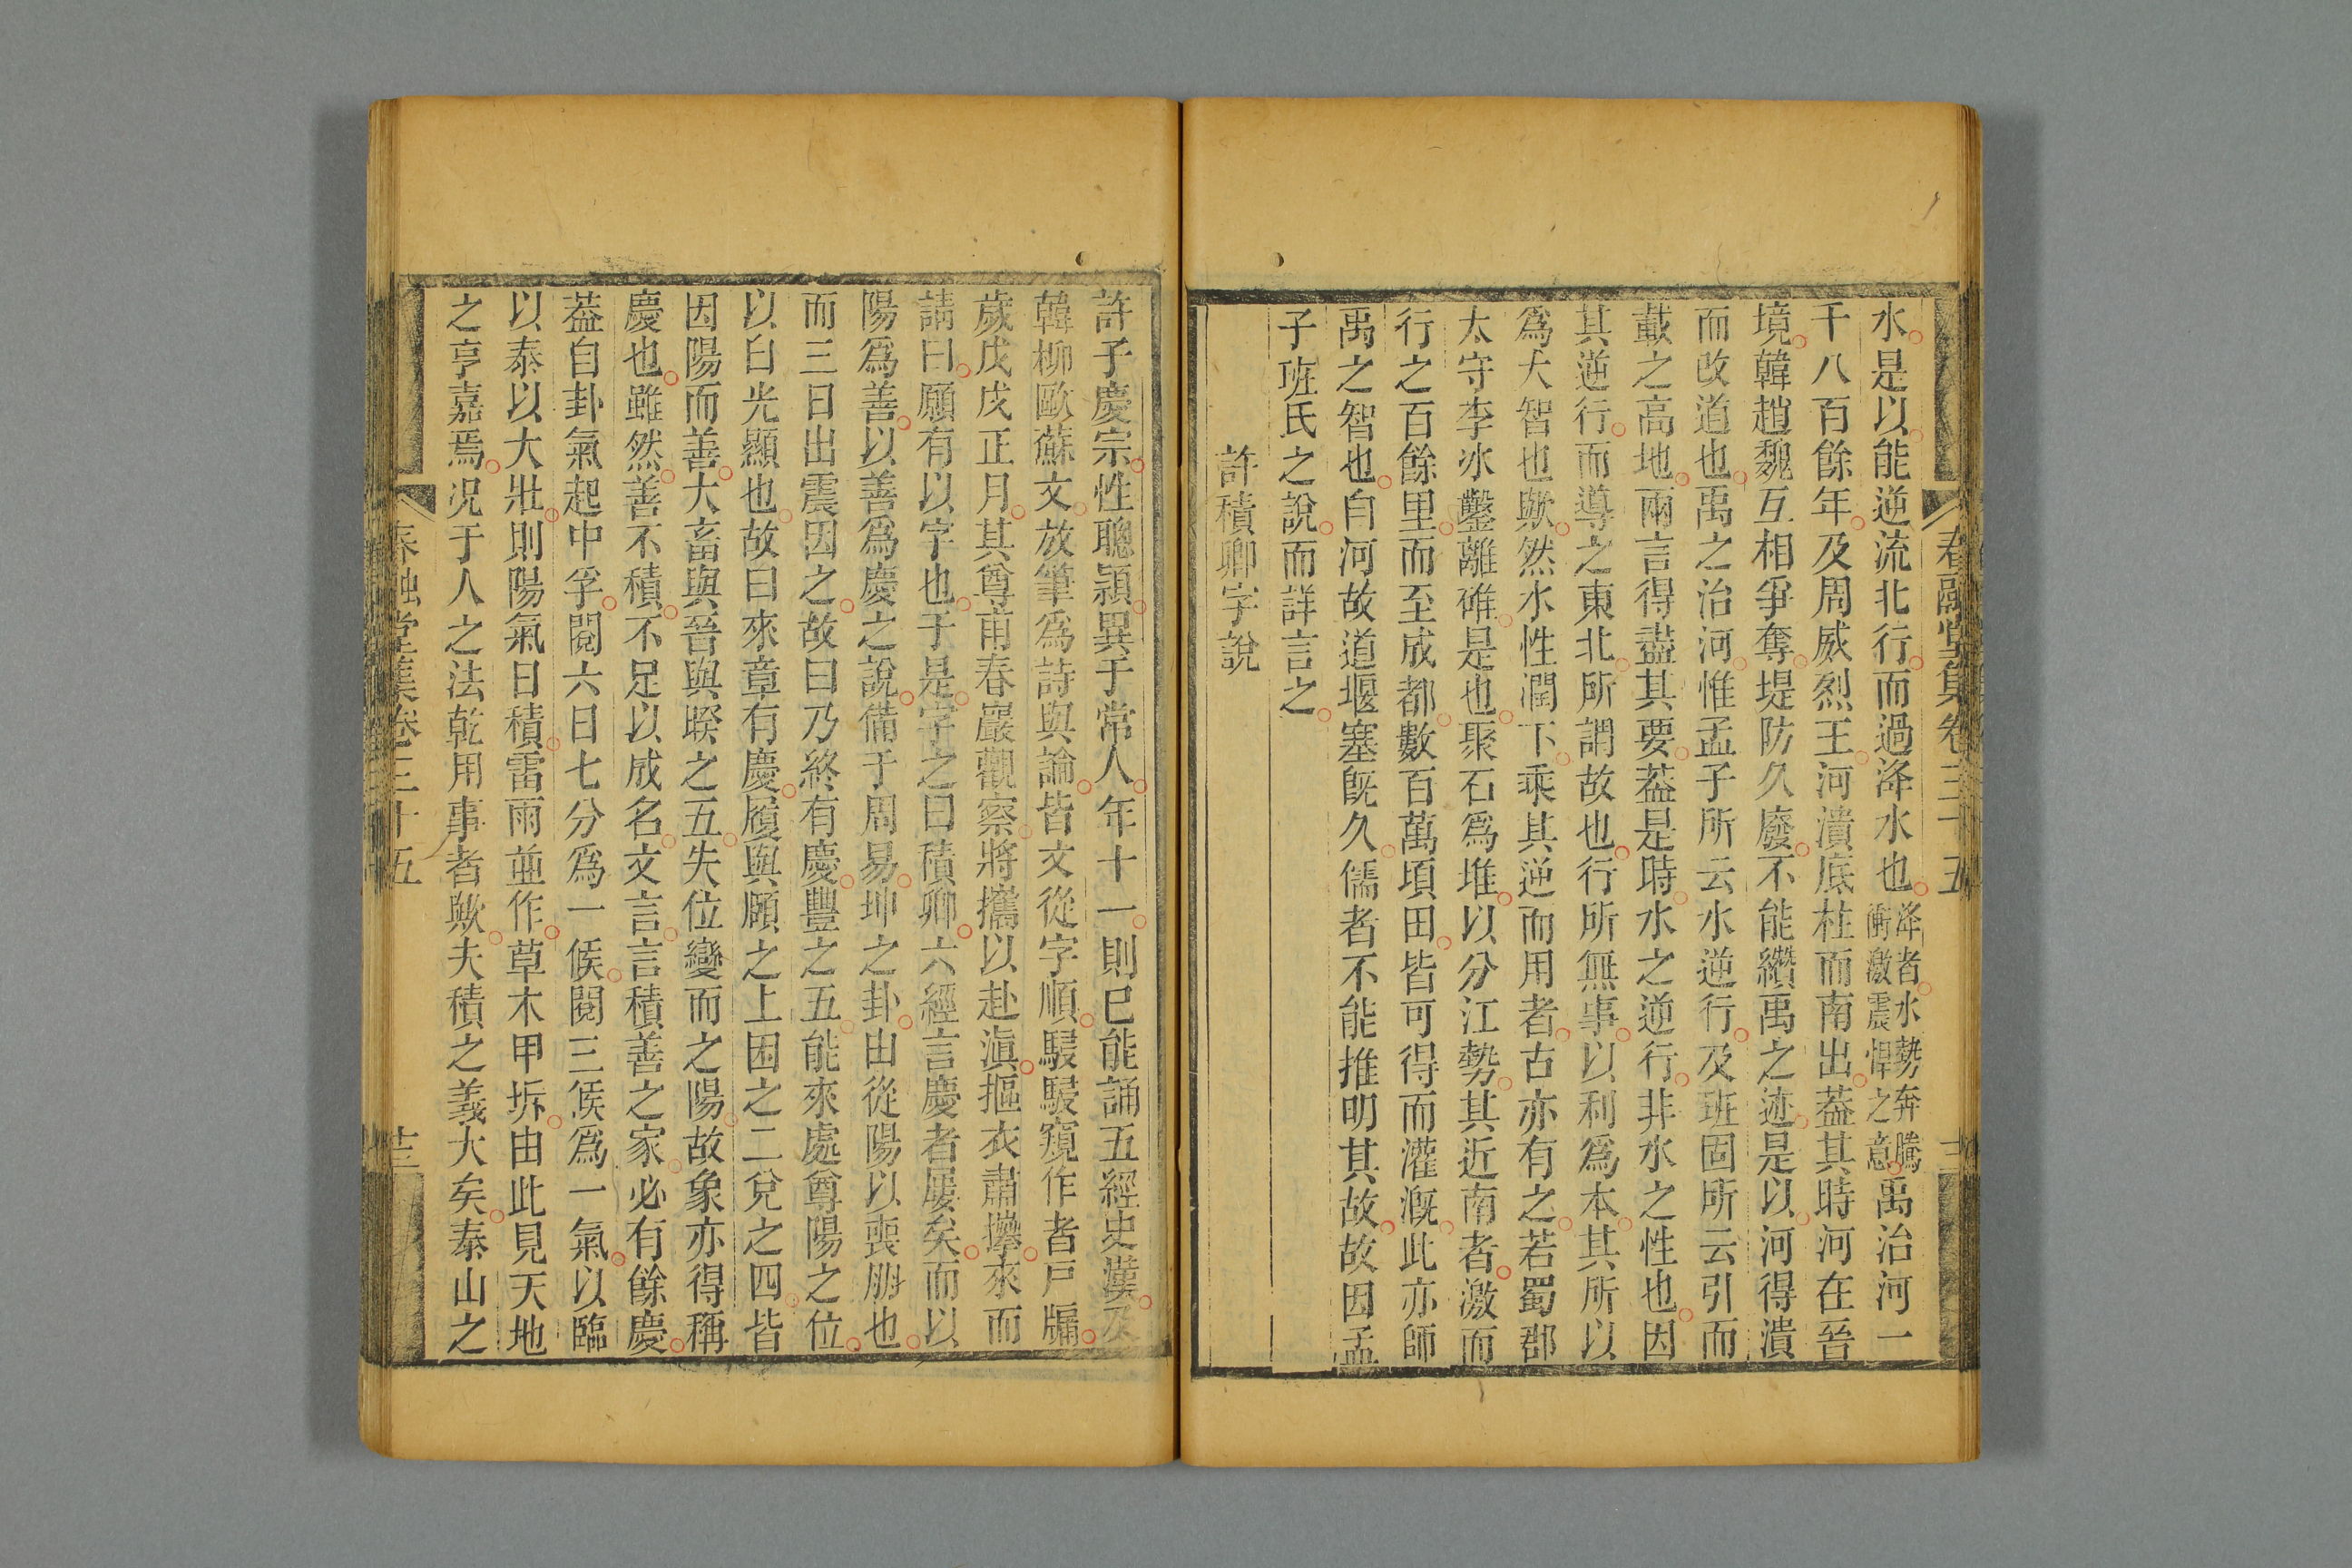 春融堂集卷三十五
水是以能逆流北行而過洚水也洚者水勢奔騰衝激震悍之意禹治河一
千八百餘年及周威烈王河潰底柱而南出葢其時河在晉
境韓趙魏互相爭奪堤防久廢不能纘禹之迹是以河得潰
而改道也禹之治河惟孟子所云水逆行及班固所云引而
載之高地兩言得盡其要葢是時水之逆行非水之性也因
其逆行而導之東北所謂故也行所無事以利爲本其所以
爲大智也歟然水性潤下乘其逆而用者古亦有之若蜀郡
太守李冰鑿離碓是也聚石爲堆以分江勢其近南者激而
行之百餘里而至成都數百萬頃田皆可得而灌漑此亦師
禹之智也自河故道堰塞旣久儒者不能推明其故故因孟
子班氏之說而詳言之
許積卿字說
許子慶宗性聰穎異于常人年十一則已能誦五經史漢及
韓柳歐蘇文放筆爲詩與論皆文從字順駸駸窺作者戸牖
歲戊戌正月其尊甫春巖觀察將攜以赴滇摳衣肅攀來而
請曰願有以字也于是字之曰積卿六經言慶者屢矣而以
陽爲善以善爲慶之說備于周易坤之卦由從陽以喪朋也
而三日出震因之故曰乃終有慶豐之五能來處尊陽之位
以曰光顯也故曰來章有慶履與頤之上困之二兌之四皆
因陽而善大畜與晉與睽之五失位變而之陽故象亦得稱
慶也雖然善不積不足以成名文言言積善之家必有餘慶
葢自卦氣起中孚閱六日七分爲一候閱三候爲一氣以臨
以泰以大壯則陽氣日積雷雨並作草木甲坼由此見天地
之亨嘉焉况于人之法乾用事者歟夫積之義大矣泰山之
春融堂集卷三十五